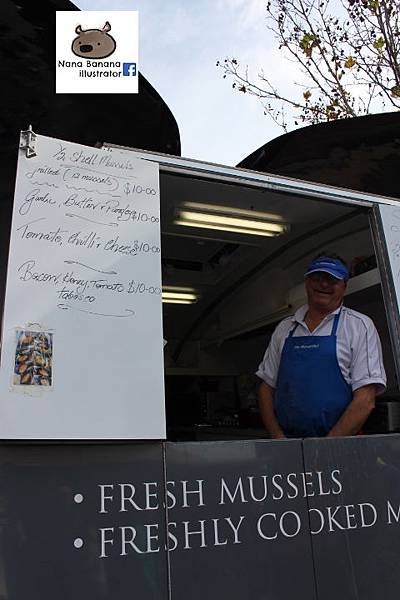 Nana Banana
illustrator f
½ Shell Mussels
grilled (12 mussels) $10-00
Garlic, Butter & Parsley $10-00
Tomato, Chilli & Cheese $10-00
Bacon, Honey, Tomato $10.00
tabasco
• FRESH MUSSELS
• FRESHLY COOKED M